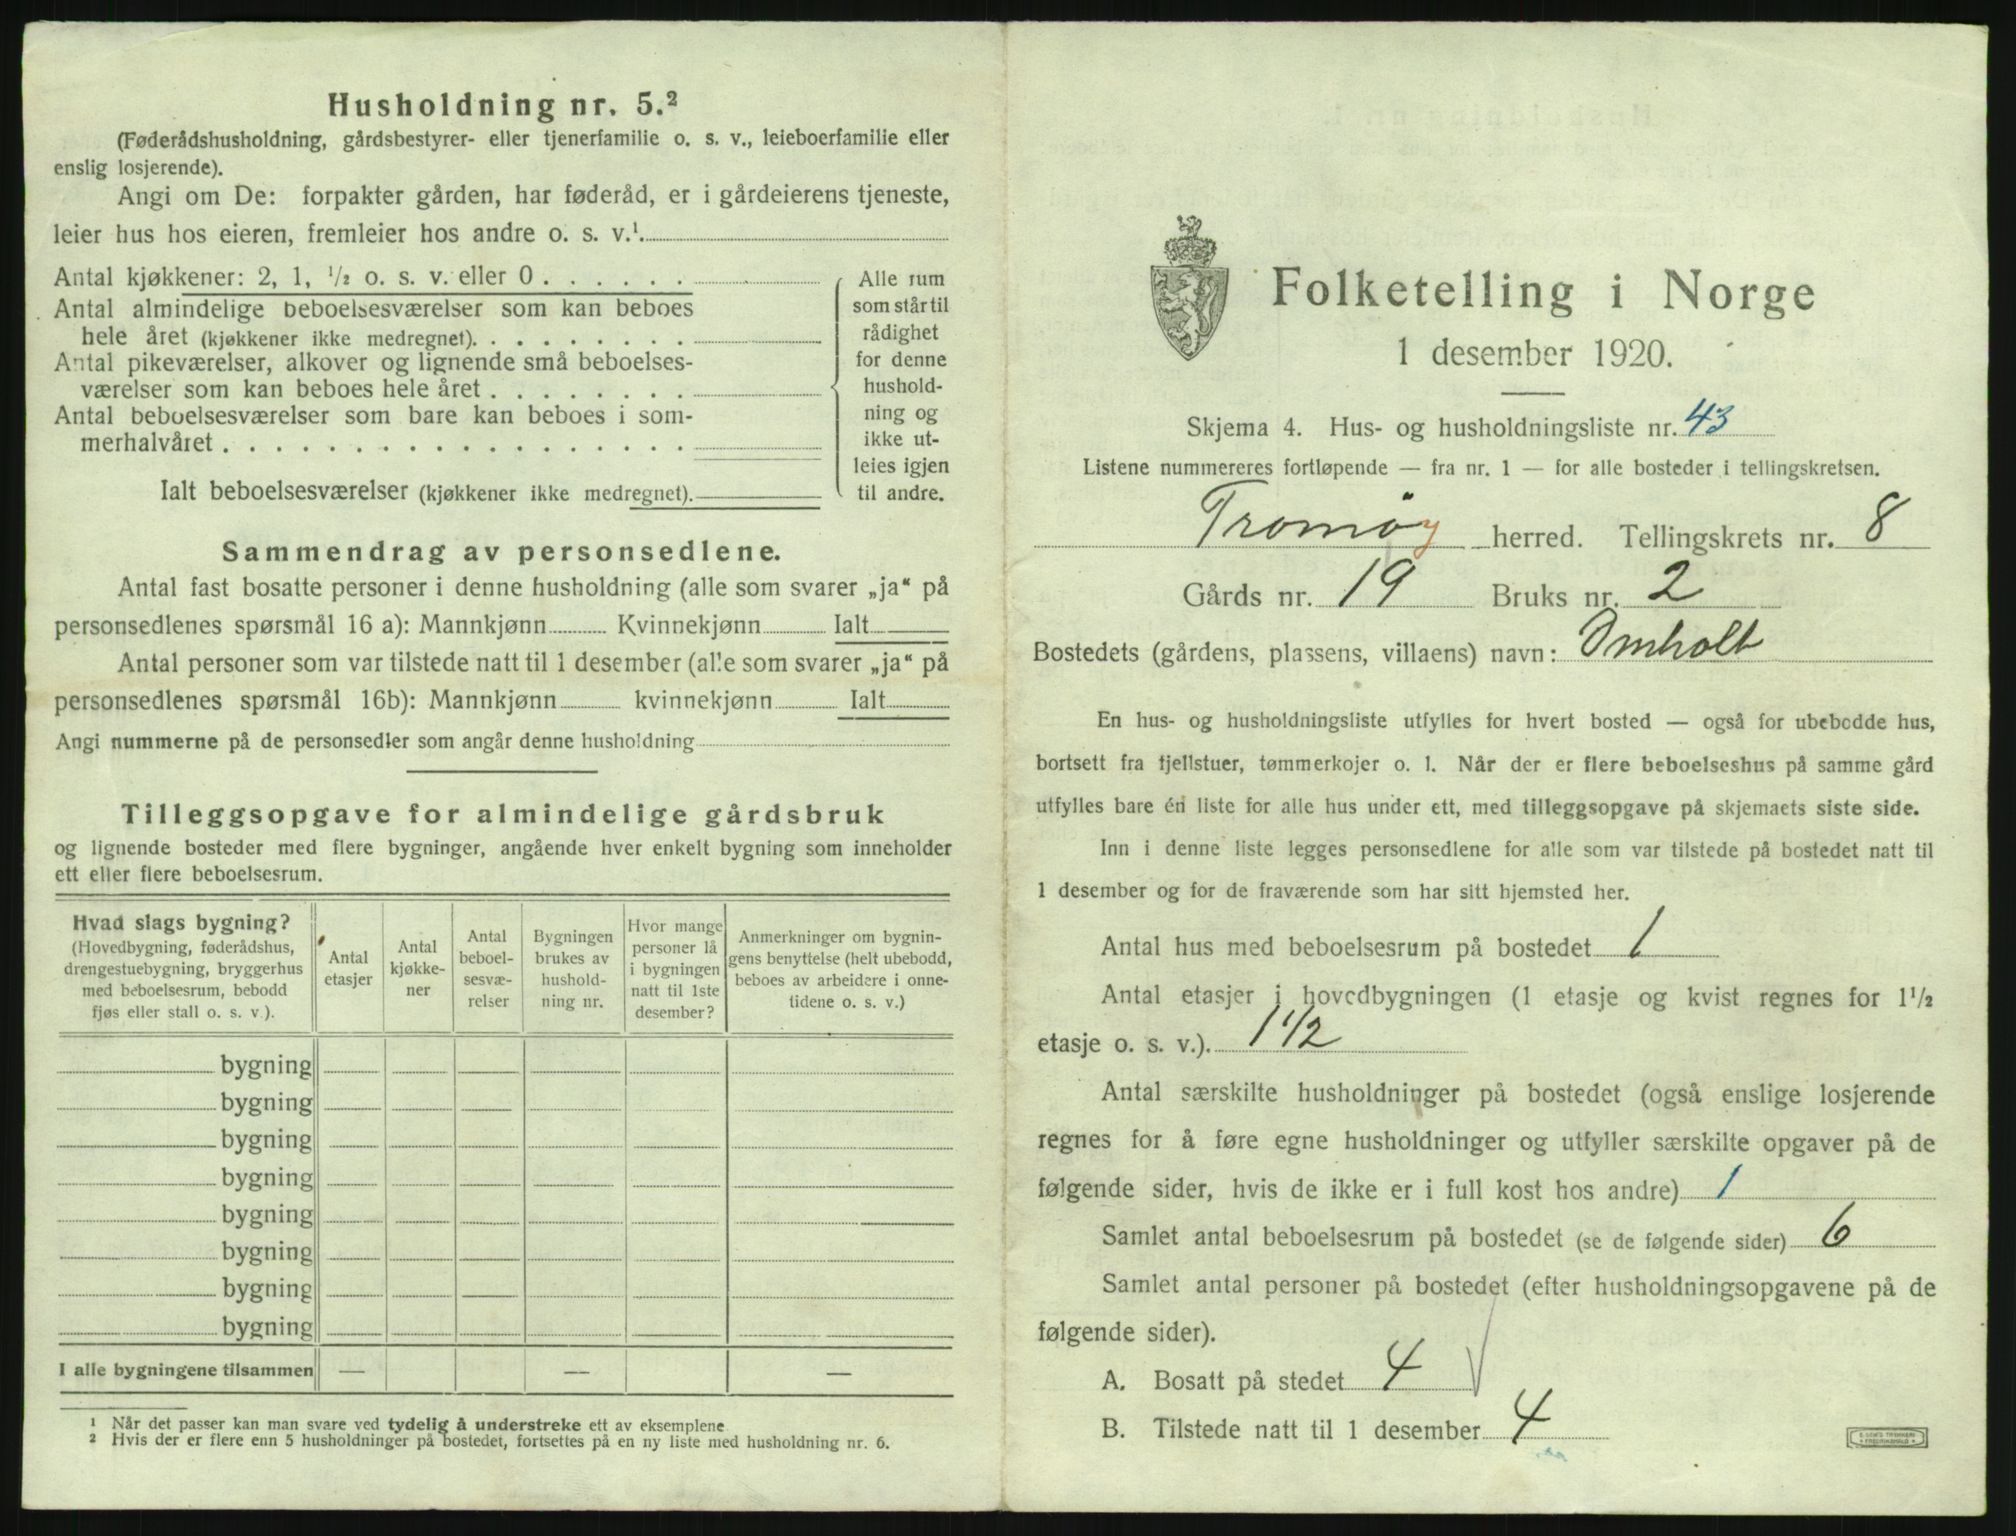 Husholdning nr. 5.²
(Føderådshusholdning, gårdsbestyrer- eller tjenerfamilie o. s. v., leieboerfamilie eller
enslig losjerende).
Angi om De: forpakter gården, har føderåd, er i gårdeierens tjeneste,
leier hus hos eieren, fremleier hos andre o. s. v.¹.
Antal kjøkkener: 2, 1, ½ o. s. v. eller 0 . . . . . .
Antal almindelige beboelsesværelser som kan beboes
hele året (kjøkkener ikke medregnet). . . . . . . . .
Antal pikeværelser, alkover og lignende små beboelses-
værelser som kan beboes hele året . . . . . . . .
Antal beboelsesværelser som bare kan beboes i som-
merhalvåret . . . . . . . . . . . . . . . . . .
Ialt beboelsesværelser (kjøkkener ikke medregnet).
Alle rum
som står til
rådighet
for denne
hushold-
ning og
ikke ut-
leies igjen
til andre.
Sammendrag av personsedlene.
Antal fast bosatte personer i denne husholdning (alle som svarer „ja“ på
personsedlenes spørsmål 16 a): Mannkjønn Kvinnekjønn Ialt
Antal personer som var tilstede natt til 1 desember (alle som svarer „ja“ på
personsedlenes spørsmål 16b): Mannkjønn kvinnekjønn Ialt
Angi nummerne på de personsedler som angår denne husholdning
Tilleggsopgave for almindelige gårdsbruk
og lignende bosteder med flere bygninger, angående hver enkelt bygning som inneholder
ett eller flere beboelsesrum.
Hvad slags bygning?
(Hovedbygning, føderådshus,
drengestuebygning, bryggerhus
med beboelsesrum, bebodd
fjøs eller stall o. s. v.).
Antal
etasjer
Antal
kjøkke-
ner
Antal
beboel-
sesvæ-
relser
Bygningen
brukes av
hushold-
ning nr.
Hvor mange
personer lå
i bygningen
natt til 1ste
desember?
Anmerkninger om bygnin-
gens benyttelse (helt ubebodd,
beboes av arbeidere i onne-
tidene o. s. v.)
bygning
bygning
bygning
bygning
bygning
bygning
bygning
bygning
I alle bygningene tilsammen — — —
¹ Når det passer kan man svare ved tydelig å understreke ett av eksemplene
² Hvis der er flere enn 5 husholdninger på bostedet, fortsettes på en ny liste med husholdning nr. 6.
Folketelling i Norge
1 desember 1920.
Skjema 4. Hus- og husholdningsliste nr. 43
Listene nummereres fortløpende — fra nr. 1 — for alle bosteder i tellingskretsen.
Tromøy herred. Tellingskrets nr. 8
Gårds nr. 19 Bruks nr. 2
Bostedets (gårdens, plassens, villaens) navn: Omholt
En hus- og husholdningsliste utfylles for hvert bosted — også for ubebodde hus,
bortsett fra fjellstuer, tømmerkojer o. l. Når der er flere beboelseshus på samme gård
utfylles bare én liste for alle hus under ett, med tilleggsopgave på skjemaets siste side.
Inn i denne liste legges personsedlene for alle som var tilstede på bostedet natt til
1 desember og for de fraværende som har sitt hjemsted her.
Antal hus med beboelsesrum på bostedet 1
Antal etasjer i hovedbygningen (1 etasje og kvist regnes for 1½
etasje o. s. v.). 1 1/2
Antal særskilte husholdninger på bostedet (også enslige losjerende
regnes for å føre egne husholdninger og utfyller særskilte opgaver på de
følgende sider, hvis de ikke er i full kost hos andre) 1
Samlet antal beboelsesrum på bostedet (se de følgende sider) 6
Samlet antal personer på bostedet (efter husholdningsopgavene på de
følgende sider).
A. Bosatt på stedet 4
B. Tilstede natt til 1 desember 4